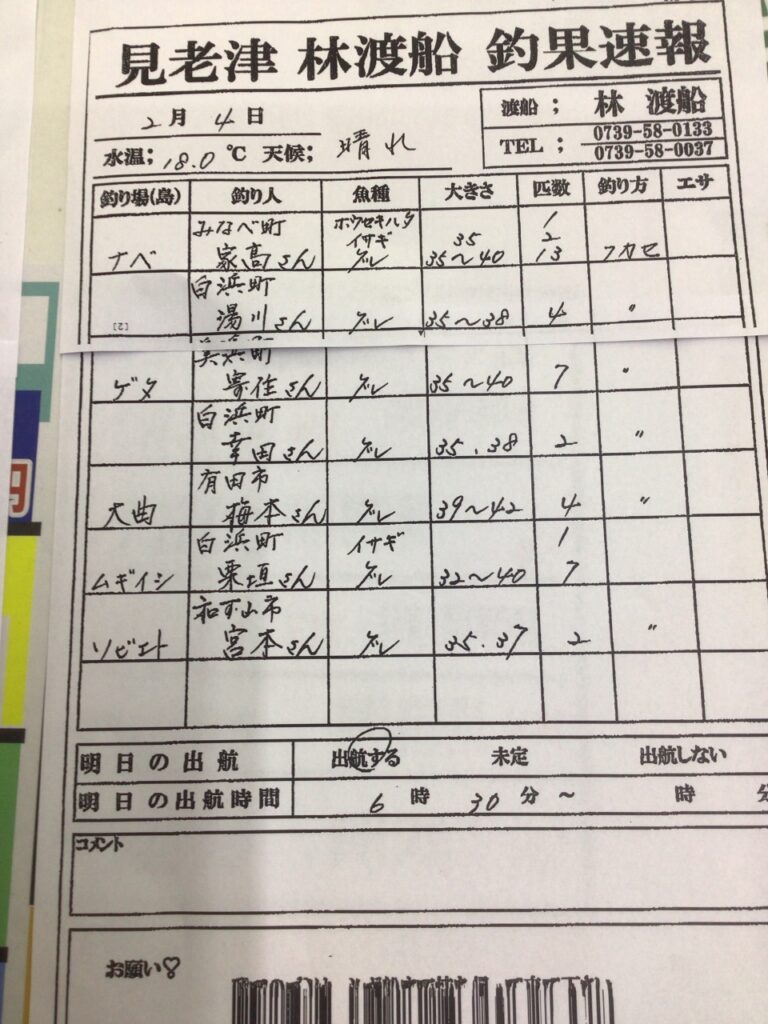 見老津 林渡船 釣果速報
2月4日
渡船； 林 渡船
水温；18.0℃ 天候；晴れ
TEL； 0739-58-0133
0739-58-0037
釣り場(島) 釣り人 魚種 大きさ 匹数 釣り方 エサ
みなべ町 ホウセキハタ 1
イサギ 35 2
ナベ 家高さん グレ 35〜40 13 フカセ
白浜町
[2] 湯川さん グレ 35〜38 4 〃
美浜町
ゲタ 寄住さん グレ 35〜40 7 〃
白浜町
幸田さん グレ 35.38 2 〃
有田市
大曲 梅本さん グレ 39〜42 4 〃
白浜町 イサギ 1
ムギイシ 栗垣さん グレ 32〜40 7
和歌山市
ソビエト 宮本さん グレ 35.37 2 〃
明日の出航 出航する 未定 出航しない
明日の出航時間 6時30分〜 時 分
コメント
お願い♡